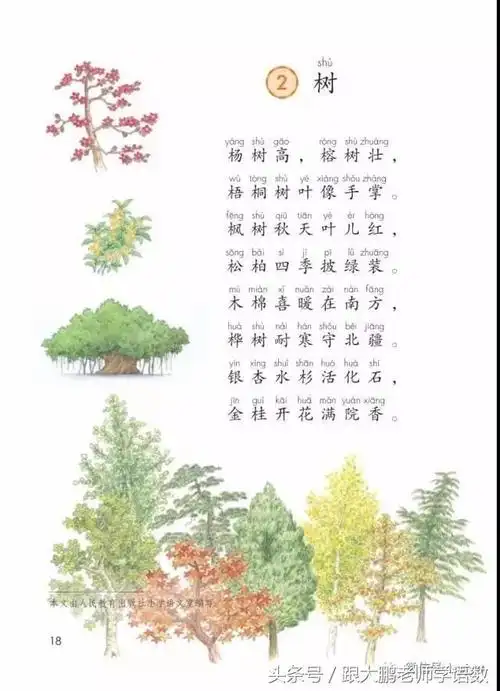 shù
2 树
yáng shù gāo róng shù zhuàng
杨树高，榕树壮，
wú tóng shù yè xiàng shǒu zhǎng
梧桐树叶像手掌。
fēng shù qiū tiān yè ér hóng
枫树秋天叶儿红，
sōng bǎi sì jì pī lǜ zhuāng
松柏四季披绿装。
mù mián xǐ nuǎn zài nán fāng
木棉喜暖在南方，
huà shù nài hán shǒu běi jiāng
桦树耐寒守北疆。
yín xìng shuǐ shān huó huà shí
银杏水杉活化石，
jīn guì kāi huā mǎn yuàn xiāng
金桂开花满院香。
本文由人民教育出版社小学语文室编写。
18
头条号 / 跟大鹏老师学语数